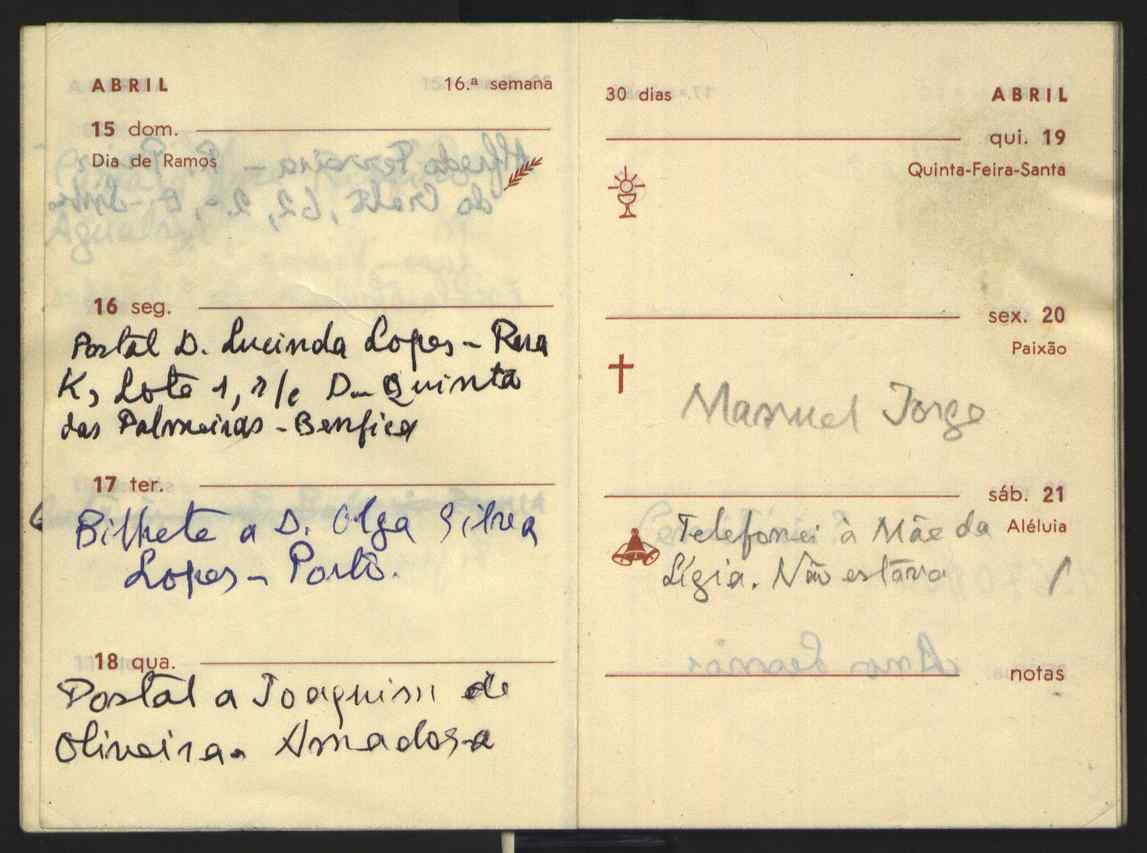 ABRIL 16.ª semana
15 dom.
Dia de Ramos
16 seg.
Postal D. Lucinda Lopes - Rua
K, Lote 1, r/c D. - Quinta
das Palmeiras - Benfica
17 ter.
Bilhete a D. Olga Silva
Lopes - Porto.
18 qua.
Postal a Joaquim de
Oliveira. Amadora
30 dias ABRIL
qui. 19
Quinta-Feira-Santa
sex. 20
Paixão
Manuel Jorge
sáb. 21
Telefonei à Mãe da Aléluia
Lígia. Não estava
notas